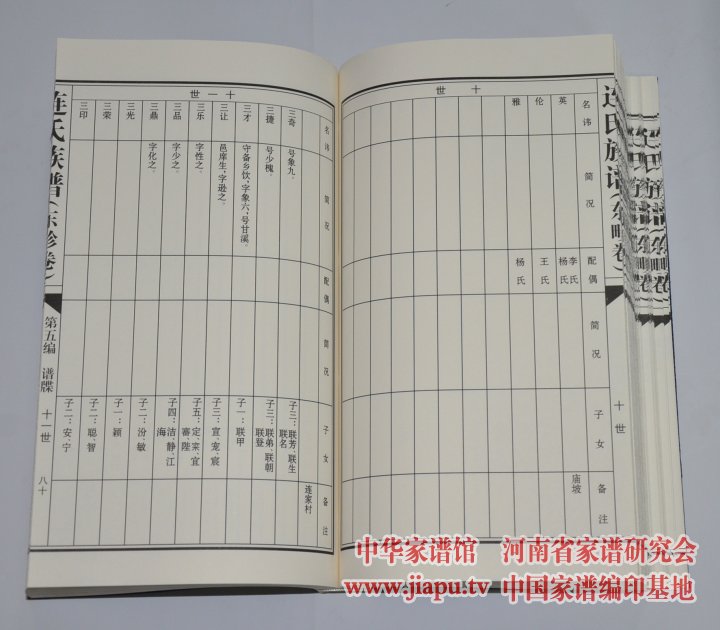 连氏族谱（东畛卷）
十世
名讳 简况 配偶 简况 子女 备注
英 李氏 杨氏 庙坡
伦 王氏
雅 杨氏
十世
连氏族谱（东畛卷）
第五编 谱牒 十一世
八十
十一世
名讳 简况 配偶 简况 子女 备注
三奇 号象九。 子三：联芳、联生 联名 连家村
三捷 号少槐。 子三：联弟、联朝 联登
三才 守备乡饮，字象六，号甘溪。 子一：联甲
三让 邑庠生，字逊之。 子三：宣、宠、宸
三乐 字性之。 子五：定、寀、宜 審、陞
三品 字少之。 子四：洁、静、江 海
三鼎 字化之。 子二：汾、敏
三光 子一：颖
三荣 子二：聪、智
三印 子二：安、宁
中华家谱馆 河南省家谱研究会
www.jiapu.tv 中国家谱编印基地